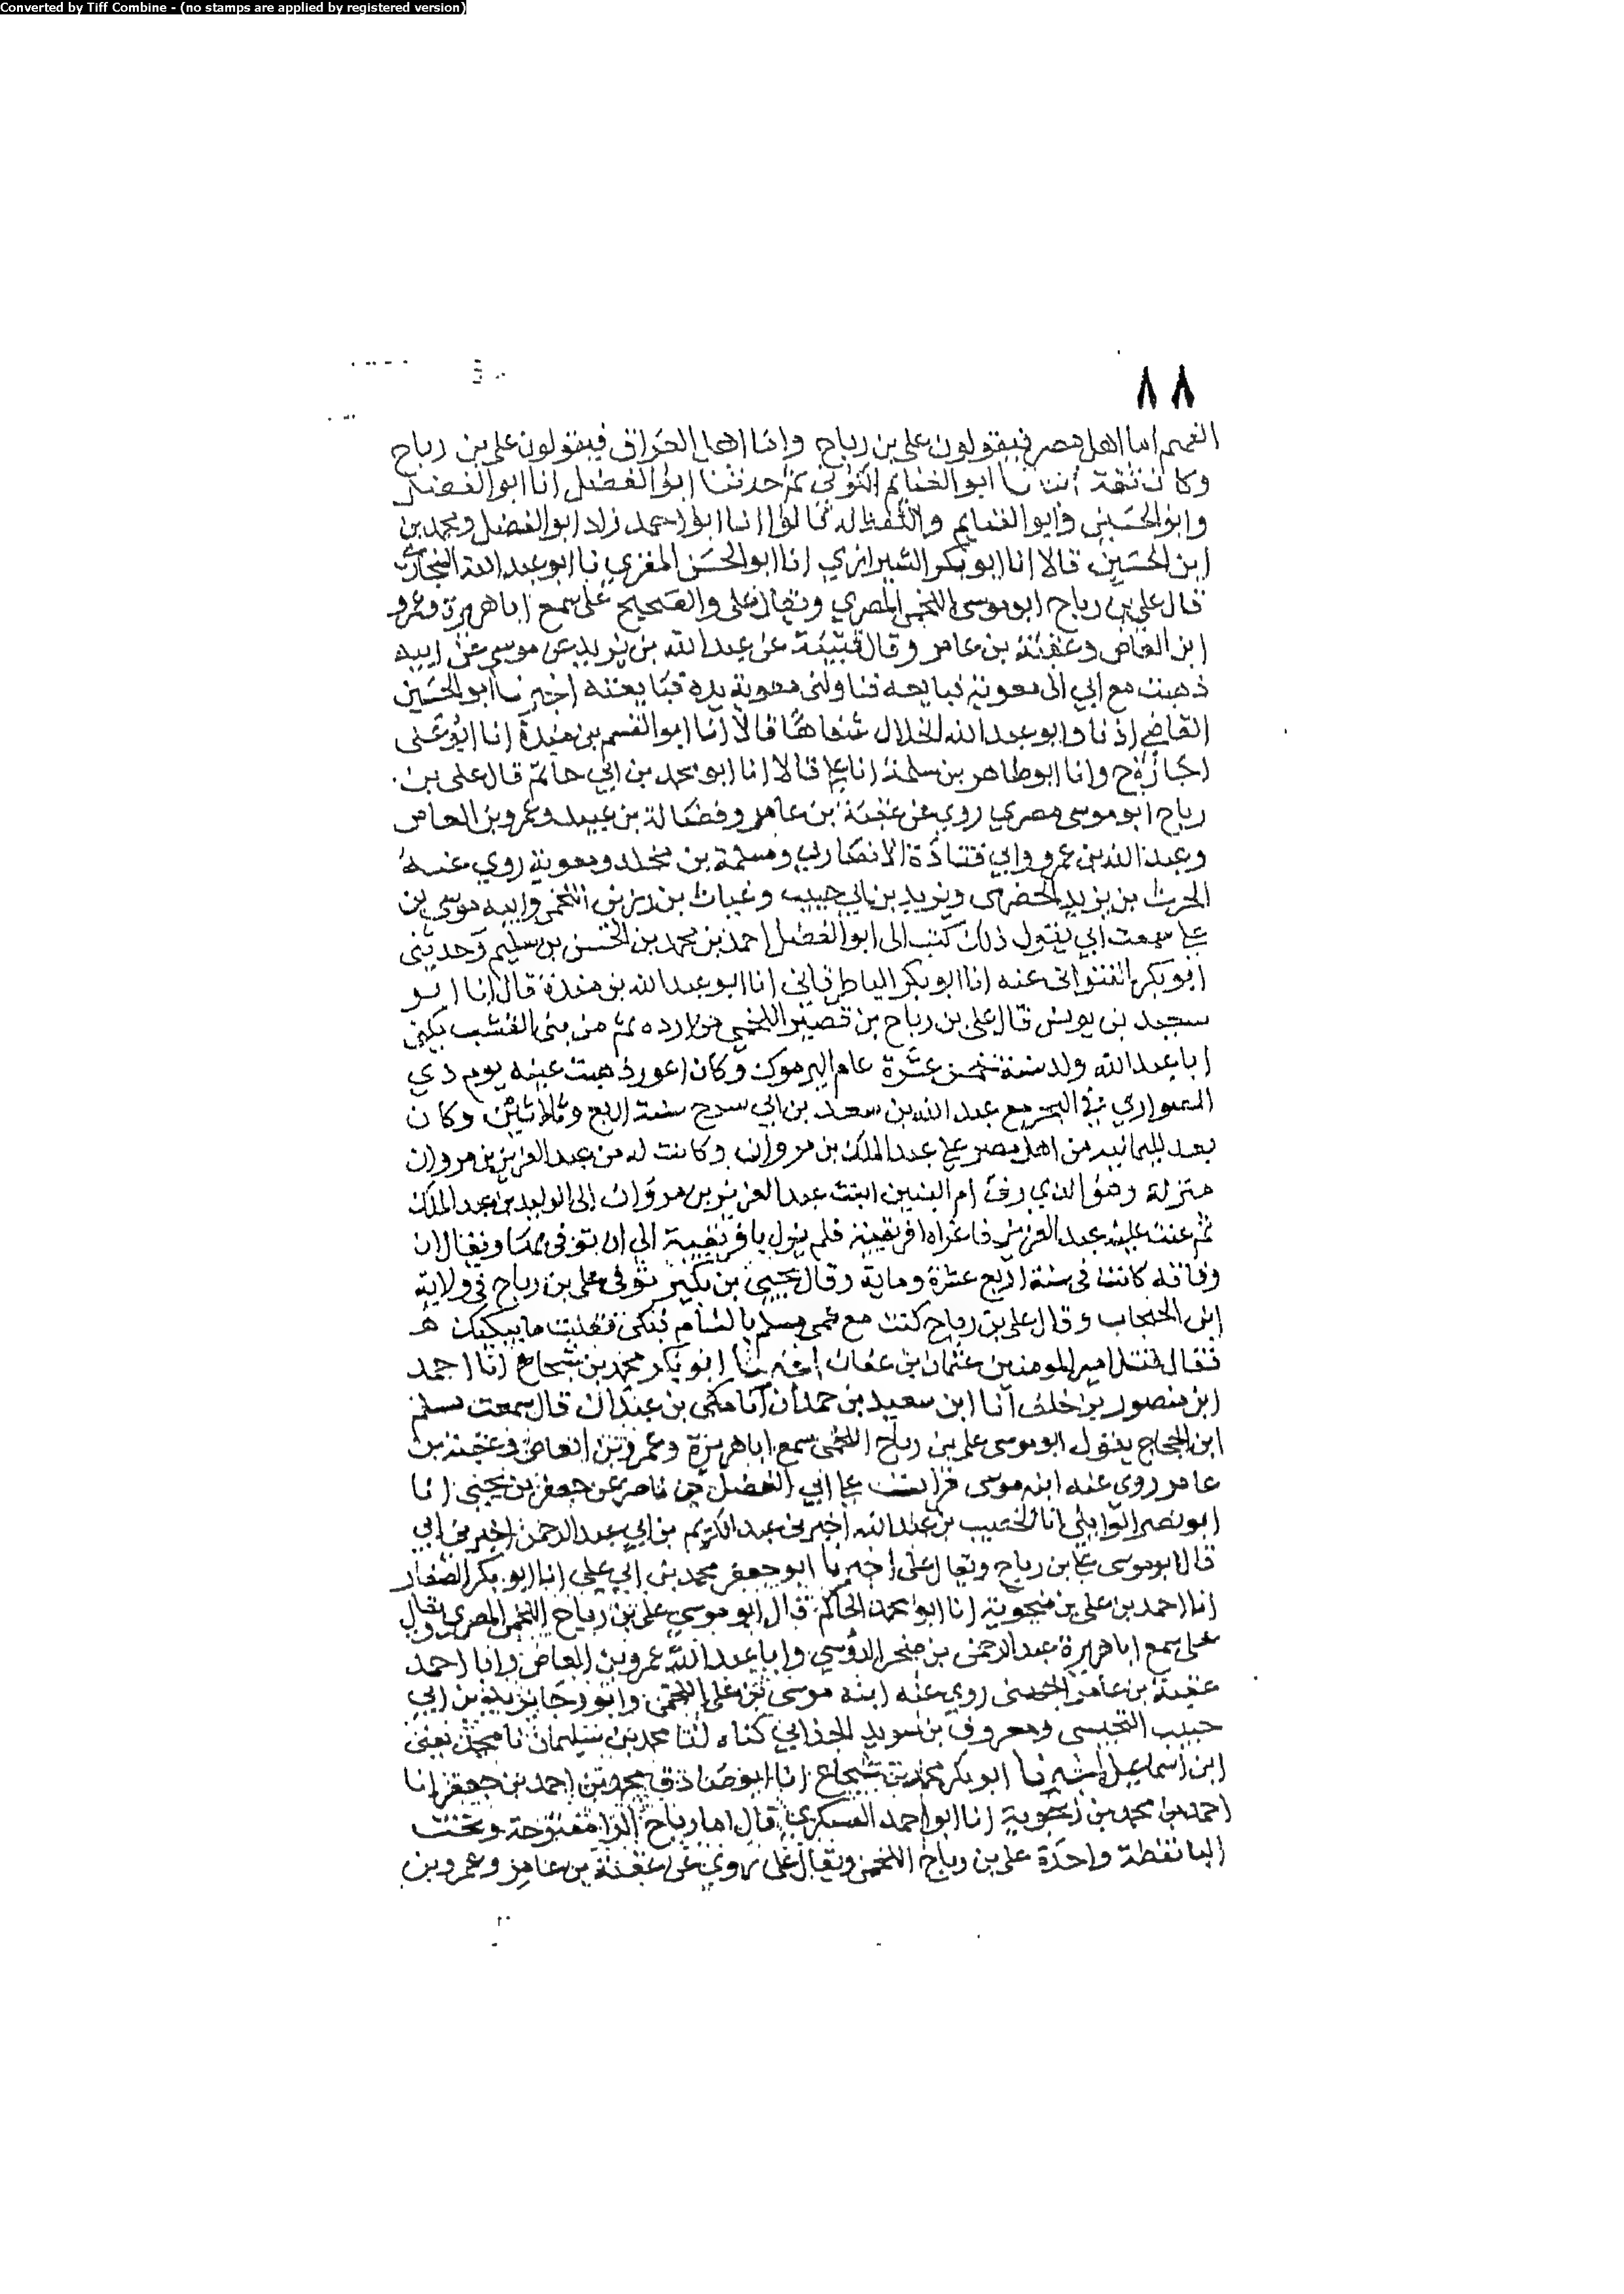 Converted by Tiff Combine - (no stamps are applied by registered version)
٨٨
اما اهل مصر فيقولون على بن رباح واما اهل العراق فيقولون على بن رباح
وكان ثقة انبانا ابو الغنايم ثم حدثنا ابو الفضل انا ابو الفضل
وابو الحسين وابو الغنايم واللفظ له قالوا انا ابو احمد زاد ابو الفضل ومحمد بن
ابن الحسين قالا انا ابو بكر الشيرازي انا ابو الحسن المقري نا ابو عبد الله البخاري
قال علي بن رباح ابو موسى اللخمي المصري ويقال على والصحيح على سمع ابا هريرة وعمرو
ابن العاص وعقبة بن عامر وقال قتيبة عن عبد الله بن يزيد عن موسى عن ابيه
ذهبت مع ابي الى معوية نبايعه فناولنى معوية يده فبايعته اخبرنا ابو الحسين
القاضي اذنا وابو عبد الله الخلال شفاها قالا انا ابو القسم بن مندة انا ابو على
اجازة ح وانا ابو طاهر بن سلمة انا على قالا انا ابو محمد بن ابي حاتم قال على بن
رباح ابو موسى مصري روي عن عقبة بن عامر وفضالة بن عبيد وعمرو بن العاص
وعبد الله بن عمرو وابي قتادة الانصاري ومسلمة بن مخلد ومعوية روي عنه
الحرث بن يزيد الحضرمى ويزيد بن ابي حبيب وغياث بن رزين اللخمي وابنه موسى بن
على سمعت ابي يقول ذلك كتب الى ابو الفضل احمد بن محمد بن الحسن بن سليم وحدثنى
ابو بكر اللفتوانى عنه انا ابو بكر الباطرقاني انا ابو عبد الله بن مندة قال انا ابو
سعيد بن يونس قال على بن رباح بن قصير اللخمي من ازده ثم من بنى القشب يكنى
ابا عبد الله ولد سنة خمس عشرة عام اليرموك وكان اعور ذهبت عينه يوم ذي
الصواري في البحر مع عبد الله بن سعد بن ابي سرح سنة اربع وثلاثين وكان
يفد لليمانيه من اهل مصر على عبد الملك بن مروان وكانت له من عبد العزيز بن مروان
منزلة وهو الذي زف ام البنين ابنت عبد العزيز بن مروان الى الوليد بن عبد الملك
ثم عتب عليه عبد العزيز فاغزاه افريقية فلم يزل بافريقية الى ان توفى بها ويقال ان
وفاته كانت في سنة اربع عشرة وماية وقال يحيى بن بكير توفى على بن رباح في ولاية
ابن الحبحاب وقال على بن رباح كنت مع عمى مسلم بالشام فبكى فقلت ما يبكيك
فقال قتل امير المومنين عثمان بن عفان اخبرنا ابو بكر محمد بن شجاع انا احمد
ابن منصور بن خلف انا ابن سعيد بن حمدان انا مكى بن عبدان قال سمعت مسلم
ابن الحجاج يقول ابو موسى على بن رباح اللخمي سمع ابا هريرة وعمرو بن العاص وعقبة بن
عامر روي عنه ابنه موسى قرات على ابي الفضل بن ناصر عن جعفر بن يحيى انا
ابو نصر الوايلي انا الخصيب بن عبد الله اخبرنى عبد الكريم بن ابي عبد الرحمن اخبرنى ابي
قال ابو موسى على بن رباح ويقال على اخبرنا ابو جعفر محمد بن ابي على انا ابو بكر الصفار
انا احمد بن على بن منجوية انا ابو احمد الحاكم قال ابو موسى على بن رباح اللخمي المصري ويقال
على سمع ابا هريرة عبد الرحمن بن صخر الدوسي وابا عبد الله عمرو بن العاص وابا احمد
عقبة بن عامر الجهنى روي عنه ابنه موسى بن على اللخمي وابو رجا يزيد بن ابي
حبيب التجيبى ومعروف بن سويد الجذامي كناه لنا محمد بن سليمان نا محمد يعنى
ابن اسماعيل اخبرنا ابو بكر محمد بن شجاع انا ابو صادق محمد بن احمد بن جعفر انا
احمد بن محمد بن زنجوية انا ابو احمد العسكري قال اما رباح الرا مفتوحة وتحت
البا نقطة واحدة على بن رباح اللخمي ويقال على روى عن عقبة بن عامر وعمرو بن